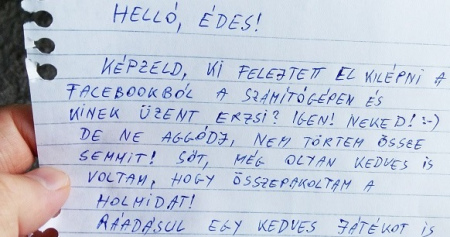 HELLÓ, ÉDES!
KÉPZELD, KI FELEJTETT EL KILÉPNI A
FACEBOOKBÓL A SZÁMÍTÓGÉPEN ÉS
KINEK ÜZENT ERZSI? IGEN! NEKED! :-)
DE NE AGGÓDJ, NEM TÖRTEM ÖSSZE
SEMMIT! SŐT, MÉG OLYAN KEDVES IS
VOLTAM, HOGY ÖSSZEPAKOLTAM A
HOLMIDAT!
RÁADÁSUL EGY KEDVES JÁTÉKOT IS